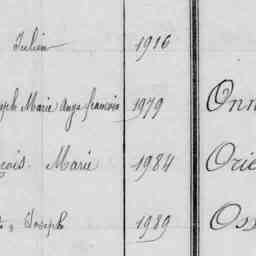 Julien 1916
Joseph Marie Ange francois 1979 Onn
çois Marie 1984 Orie
Joseph 1989 Oss